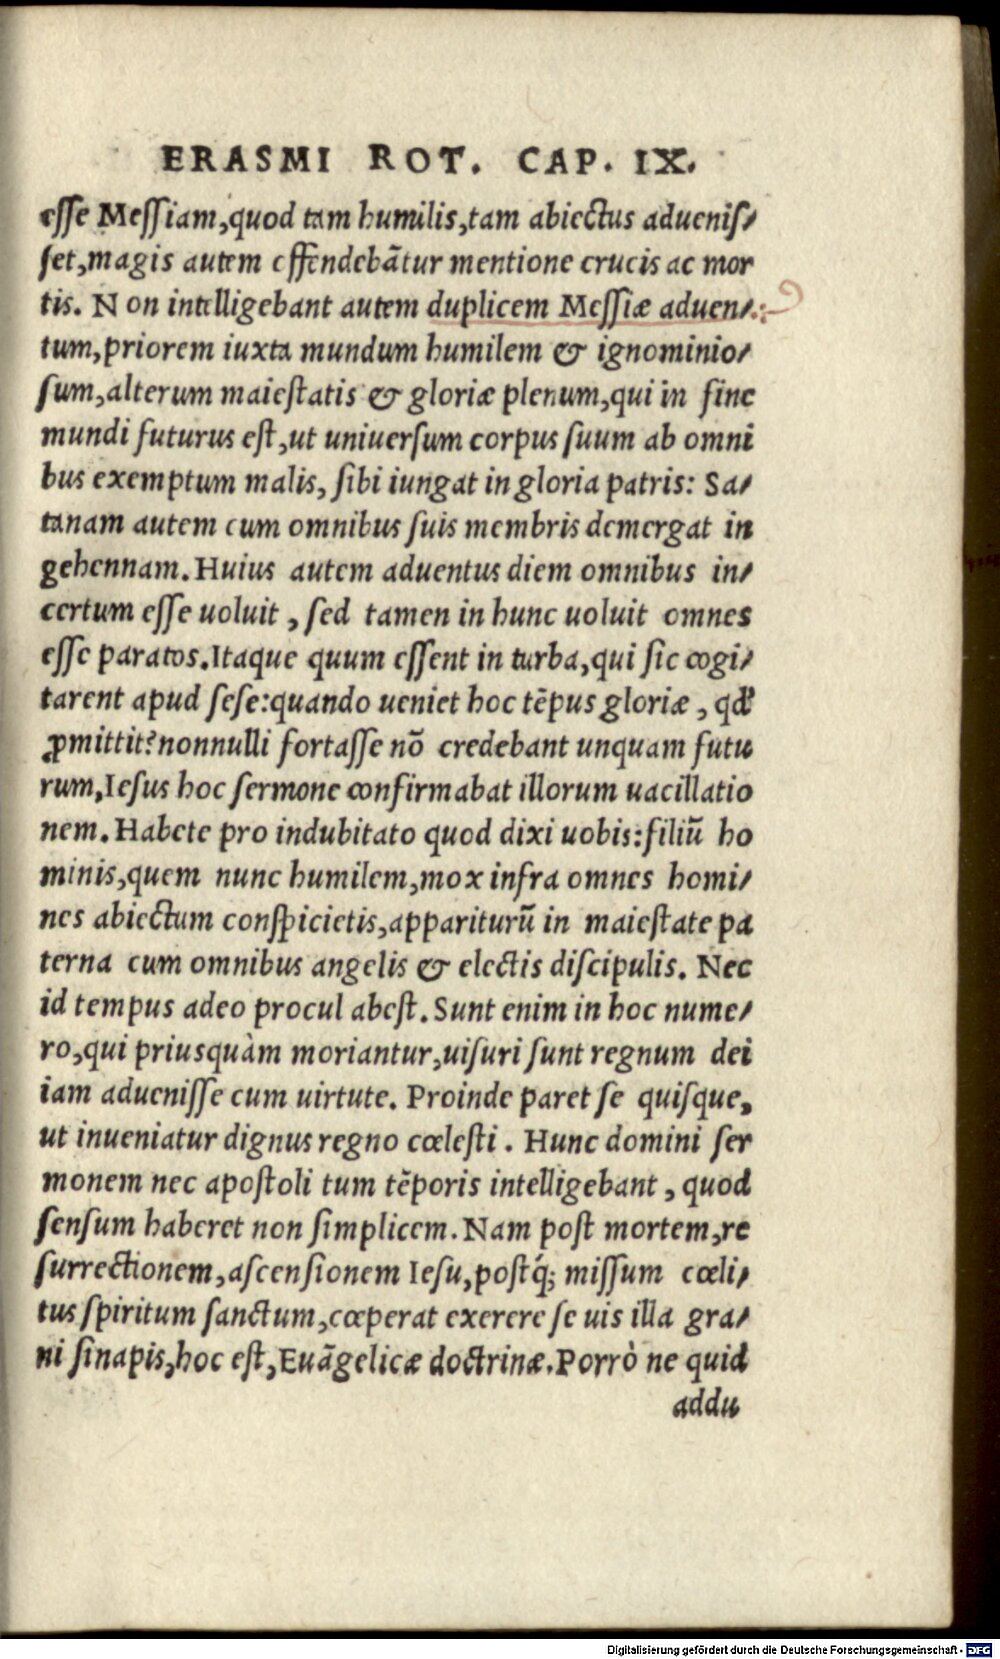 ERASMI ROT. CAP. IX.
esse Messiam,quod tam humilis,tam abiectus aduenis/
set,magis autem offendebātur mentione crucis ac mor
tis. Non intelligebant autem duplicem Messiæ aduen/
tum,priorem iuxta mundum humilem & ignominio/
sum,alterum maiestatis & gloriæ plenum,qui in fine
mundi futurus est,ut uniuersum corpus suum ab omni
bus exemptum malis, sibi iungat in gloria patris: Sa/
tanam autem cum omnibus suis membris demergat in
gehennam. Huius autem aduentus diem omnibus in/
certum esse uoluit , sed tamen in hunc uoluit omnes
esse paratos. Itaque quum essent in turba,qui sic cogi/
tarent apud sese:quando ueniet hoc tēpus gloriæ , qđ
ꝓmittit? nonnulli fortasse nō credebant unquam futu
rum,Iesus hoc sermone confirmabat illorum uacillatio
nem. Habete pro indubitato quod dixi uobis:filiū ho
minis,quem nunc humilem,mox infra omnes homi/
nes abiectum conspicietis,appariturū in maiestate pa
terna cum omnibus angelis & electis discipulis. Nec
id tempus adeo procul abest. Sunt enim in hoc nume/
ro,qui priusquàm moriantur,uisuri sunt regnum dei
iam aduenisse cum uirtute. Proinde paret se quisque,
ut inueniatur dignus regno cœlesti . Hunc domini ser
monem nec apostoli tum tēporis intelligebant , quod
sensum haberet non simplicem. Nam post mortem,re
surrectionem,ascensionem Iesu,postq́; missum cœli/
tus spiritum sanctum,cœperat exerere se uis illa gra/
ni sinapis,hoc est,Euāgelicæ doctrinæ. Porrò ne quid
addu
Digitalisierung gefördert durch die Deutsche Forschungsgemeinschaft - DFG